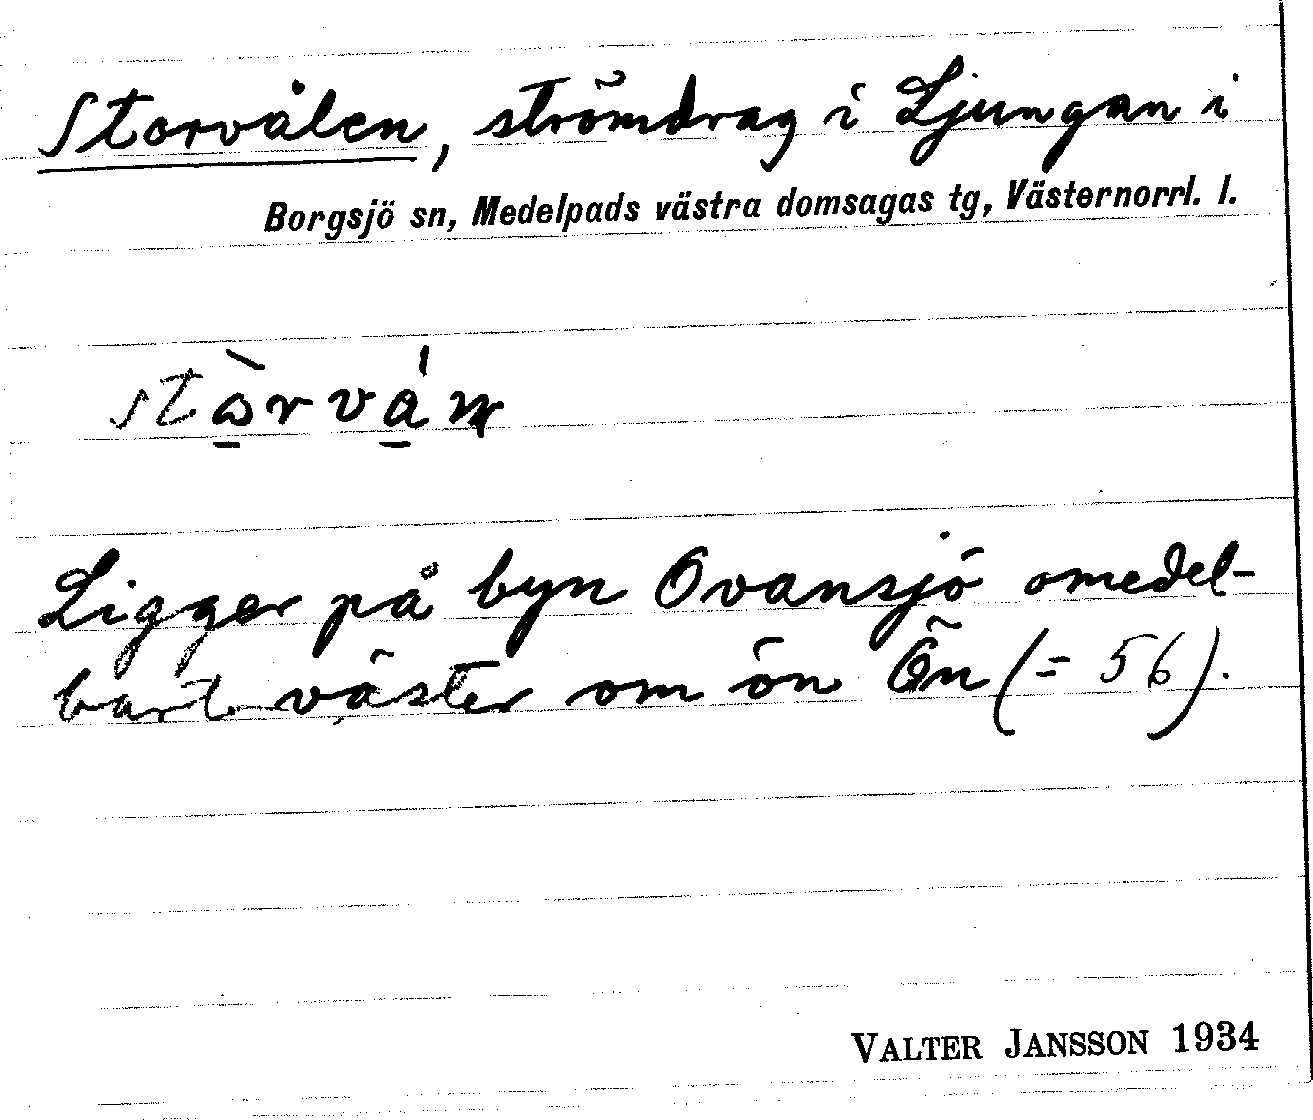 Storvålen, strömdrag i Ljungan i
Borgsjö sn, Medelpads västra domsagas tg, Västernorrl. l.
Ligger på byn Ovansjö omedel-
bart väster om ön Ön (= 56).
VALTER JANSSON 1934